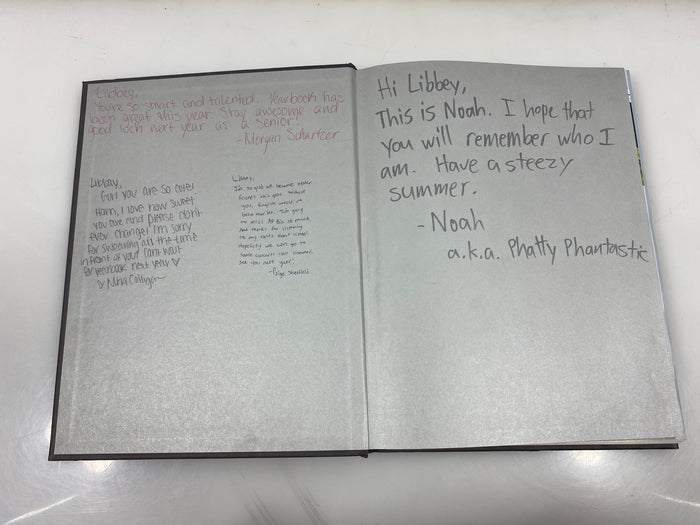 Libbey,
You're so smart and talented. Yearbook has
been great this year. Stay awesome and
good luck next year as a senior!
- Morgan
Libbey,
Gurl you are so cute!
I love how sweet
you are and please don't
ever change! I'm sorry
for swearing all the time
in front of you! Can't wait
for yearbook next year ♡
♡ Nina
Libbey,
I'm so glad we became better
friends this year. Without
you, English would've
been
And thanks for listening
to my rants about school.
Hopefully we can go to
some concerts this summer.
See you next year!
- Paige
Hi Libbey,
This is Noah. I hope that
you will remember who I
am. Have a steezy
summer.
- Noah
a.k.a. Phatty Phantastic